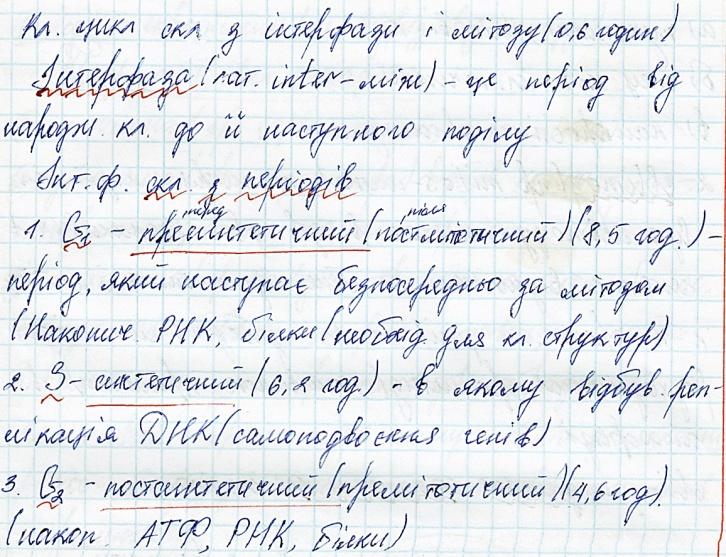 Кл. цикл скл з інтерфази і мітозу (0,6 годин)
Інтерфаза (лат. inter-між) - це період від
народж. кл. до її наступного поділу
Інт. ф. скл. з періодів
перед після
1. G1 - пресинтетичний (постмітотичний) (8,5 год.) -
період, який наступає безпосередньо за мітозом
(Накопич. РНК, білки (необхід. для кл. структур)
2. S - синтетичний (6,2 год.) - в якому відбув. реп-
лікація ДНК (самоподвоєння генів)
3. G2 - постсинтетичний (премітотичний) (4,6 год).
(накоп. АТФ, РНК, білки)